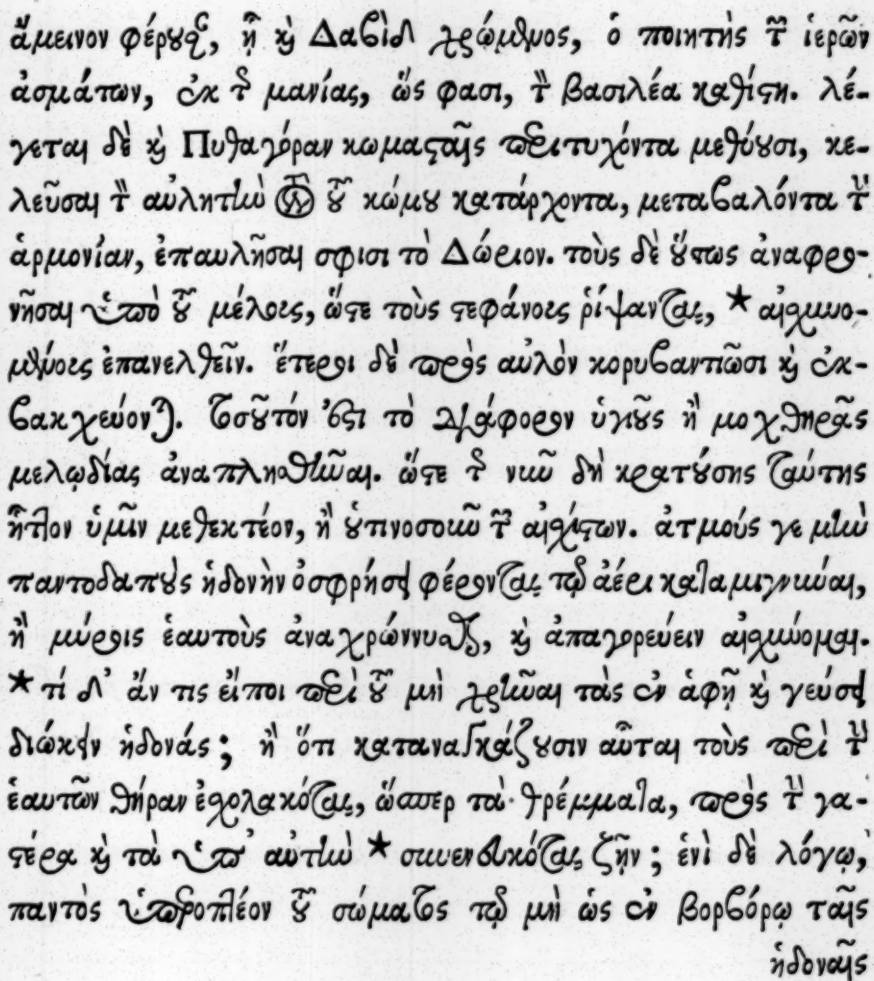 ἄμεινον φέρουσαν, ᾗ καὶ Δαβὶδ χρώμενος, ὁ ποιητὴς τῶν ἱερῶν
ἀσμάτων, ἐκ τῆς μανίας, ὥς φασι, τὸν βασιλέα καθίστη. λέ-
γεται δὲ καὶ Πυθαγόραν κωμασταῖς περιτυχόντα μεθύουσι, κε-
λεῦσαι τὸν αὐλητὴν τὸν τοῦ κώμου κατάρχοντα, μεταβαλόντα τὴν
ἁρμονίαν, ἐπαυλῆσαι σφισι τὸ Δώριον. τοὺς δὲ οὕτως ἀναφρο-
νῆσαι ὑπὸ τοῦ μέλους, ὥστε τοὺς στεφάνους ῥίψαντας, * αἰσχυνο-
μένους ἐπανελθεῖν. ἕτεροι δὲ πρὸς αὐλὸν κορυβαντιῶσι καὶ ἐκ-
βακχεύονται. τοσοῦτόν ἐστι τὸ διάφορον ὑγιοῦς ἢ μοχθηρᾶς
μελῳδίας ἀναπλησθῆναι. ὥστε τῆς νῦν δὴ κρατούσης ταύτης
ἧττον ὑμῖν μεθεκτέον, ἢ οὑτινοσοῦν τῶν αἰσχίστων. ἀτμούς γε μὴν
παντοδαποὺς ἡδονὴν ὀσφρήσει φέροντας τῷ ἀέρι καταμιγνύναι,
ἢ μύροις ἑαυτοὺς ἀναχρώννυσθαι, καὶ ἀπαγορεύειν αἰσχύνομαι.
* τί δ' ἄν τις εἴποι περὶ τοῦ μὴ χρῆναι τὰς ἐν ἁφῇ καὶ γεύσει
διώκειν ἡδονάς; ἢ ὅτι καταναγκάζουσιν αὗται τοὺς περὶ τὴν
ἑαυτῶν θήραν ἐσχολακότας, ὥσπερ τὰ θρέμματα, πρὸς τὴν γα-
στέρα καὶ τὰ ὑπ' αὐτὴν * συνενευκότας ζῆν; ἑνὶ δὲ λόγῳ,
παντὸς ὑπεροπτέον τοῦ σώματος τῷ μὴ ὡς ἐν βορβόρῳ ταῖς
ἡδοναῖς